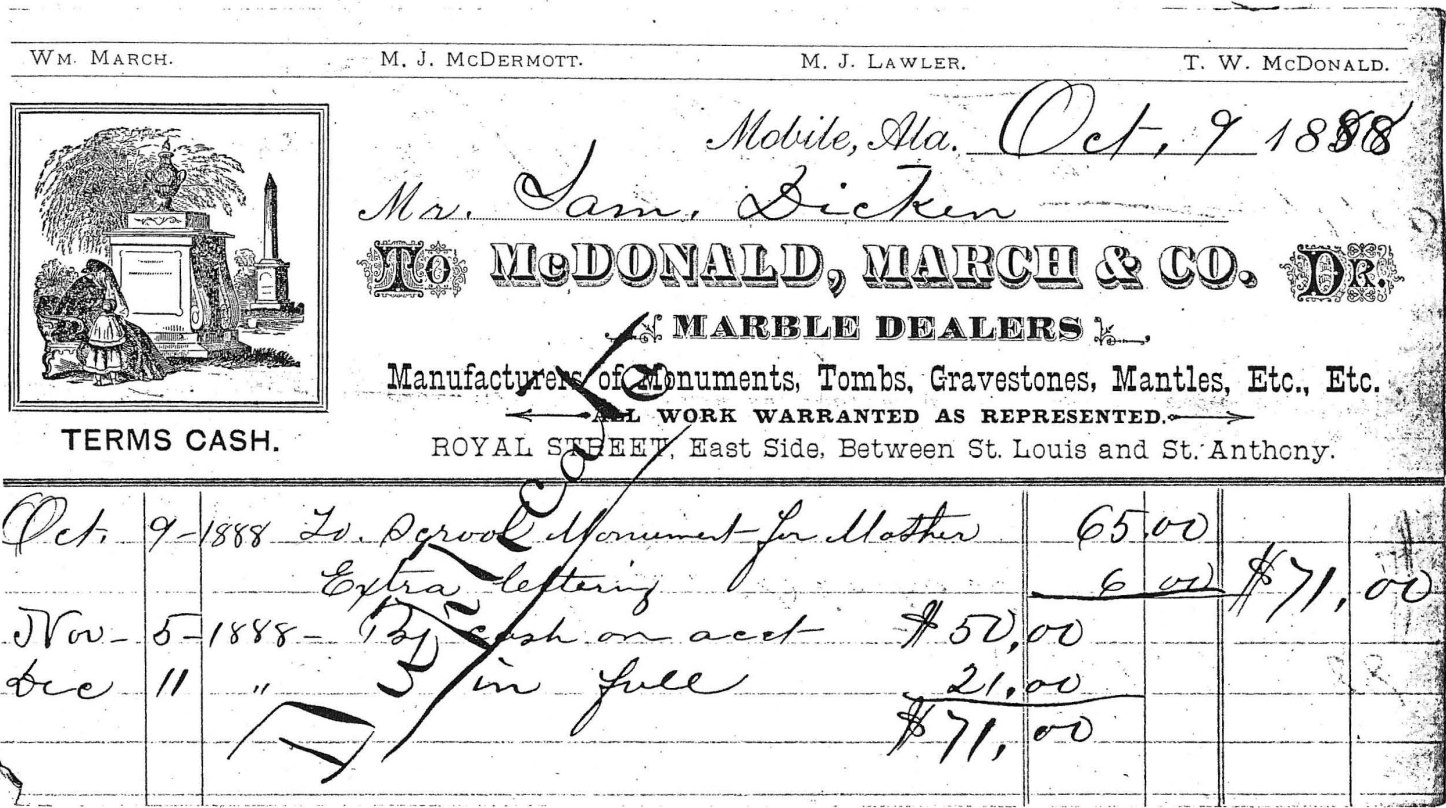 WM. MARCH. M. J. MCDERMOTT. M. J. LAWLER. T. W. MCDONALD.
Mobile, Ala. Oct. 9 1888
Mr. Sam. Dicken
TO MCDONALD, MARCH & CO. DR.
MARBLE DEALERS
Manufacturers of Monuments, Tombs, Gravestones, Mantles, Etc., Etc.
ALL WORK WARRANTED AS REPRESENTED.
TERMS CASH.
ROYAL STREET, East Side, Between St. Louis and St. Anthony.
Oct. 9-1888 To. Scrool Monument for Mother 65.00
Extra lettering 6 00 $71,00
Nov- 5-1888- By cash on acct $50,00
Dec 11 " in full 21,00
$71,00
Duplicate